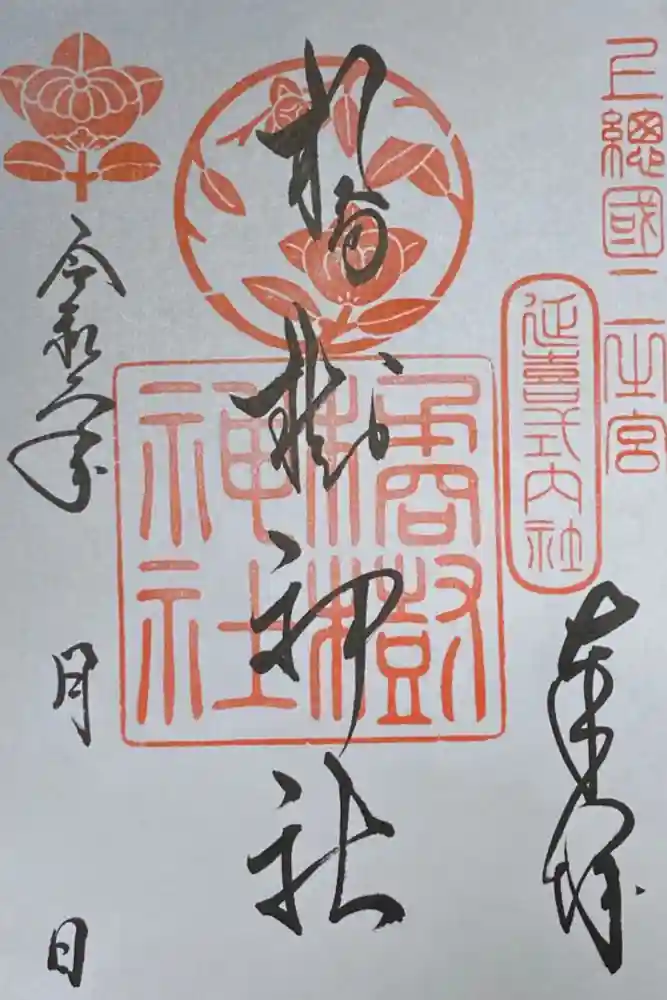 上總國二之宮
延喜式内社
奉拝
橘樹神社
橘樹
神社
令和年
月
日